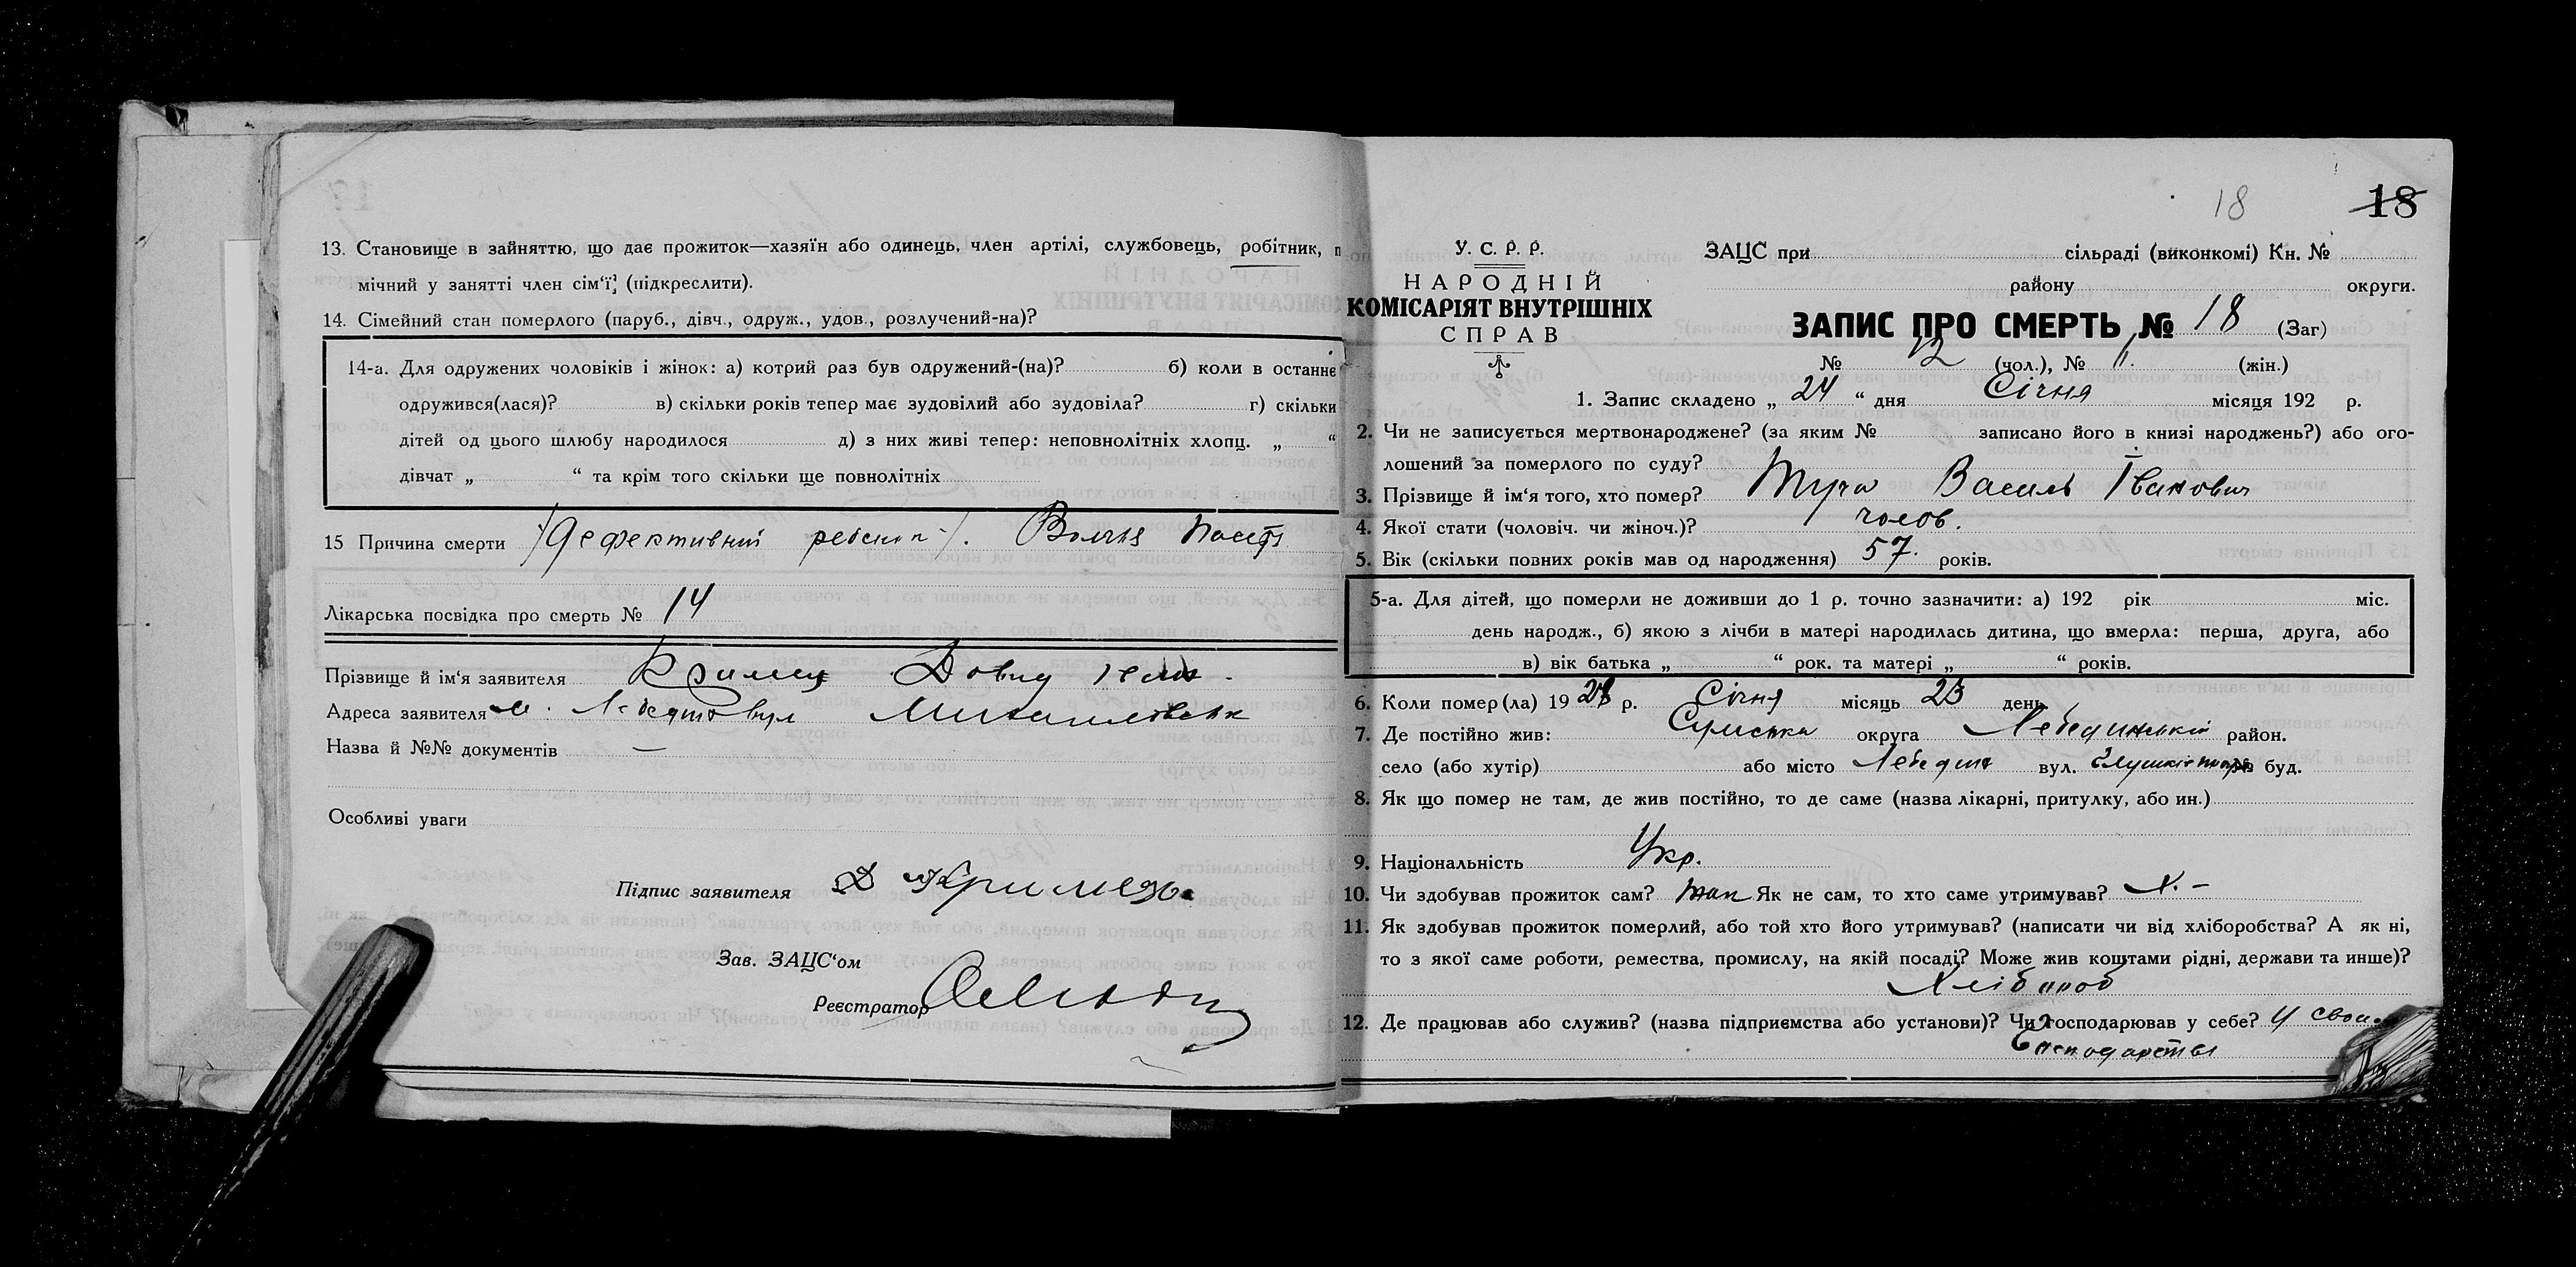 13. Становище в зайняттю, що дає прожиток—хазяїн або одинець, член артілі, службовець, робітник, п
мічний у занятті член сім‘ї, (підкреслити).
14. Сімейний стан померлого (паруб., дівч., одруж., удов., розлучений-на)?
14-а. Для одружених чоловіків і жінок: а) котрий раз був одружений-(на)? б) коли в останнє
одружився(лася)? в) скільки років тепер має зудовілий або зудовіла? г) скільки
дітей од цього шлюбу народилося д) з них живі тепер: неповнолітніх хлопц. „ “
дівчат „ “ та крім того скільки ще повнолітніх
15 Причина смерти
Лікарська посвідка про смерть № 14
Прізвище й ім‘я заявителя Кримец Довид
Адреса заявителя м.
Назва й №№ документів —
Особливі уваги
Підпис заявителя Д Кримец
Зав. ЗАЦС‘ом
Реєстратор
18 18
У. С. Р. Р.
НАРОДНІЙ
КОМІСАРІЯТ ВНУТРІШНІХ
СПРАВ
ЗАЦС при сільраді (виконкомі) Кн. №
району округи.
ЗАПИС ПРО СМЕРТЬ № 18 (Заг)
№ 12 (чол.), № (жін.)
1. Запис складено „ 24 “ дня Січня місяця 192 р.
2. Чи не записується мертвонароджене? (за яким № записано його в книзі народжень?) або ого-
лошений за померлого по суду?
3. Прізвище й ім‘я того, хто помер? Василь Іванович
4. Якої стати (чоловіч. чи жіноч.)? чолов.
5. Вік (скільки повних років мав од народження) 57. років.
5-а. Для дітей, що померли не доживши до 1 р. точно зазначити: а) 192 рік міс.
день народж., б) якою з лічби в матері народилась дитина, що вмерла: перша, друга, або
в) вік батька „ “ рок. та матері „ “ років.
6. Коли помер(ла) 1928 р. Січня місяць 23 день
7. Де постійно жив: Сумська округа Лебединський район.
село (або хутір) або місто Лебедин вул. № буд.
8. Як що помер не там, де жив постійно, то де саме (назва лікарні, притулку, або ин.)
9. Національність Укр.
10. Чи здобував прожиток сам? так Як не сам, то хто саме утримував? Х. –
11. Як здобував прожиток померлий, або той хто його утримував? (написати чи від хліборобства? А як ні,
то з якої саме роботи, ремества, промислу, на якій посаді? Може жив коштами рідні, держави та инше)?
Хлібороб
12. Де працював або служив? (назва підприємства або установи)? Чи господарював у себе? У своп.
Господарстві